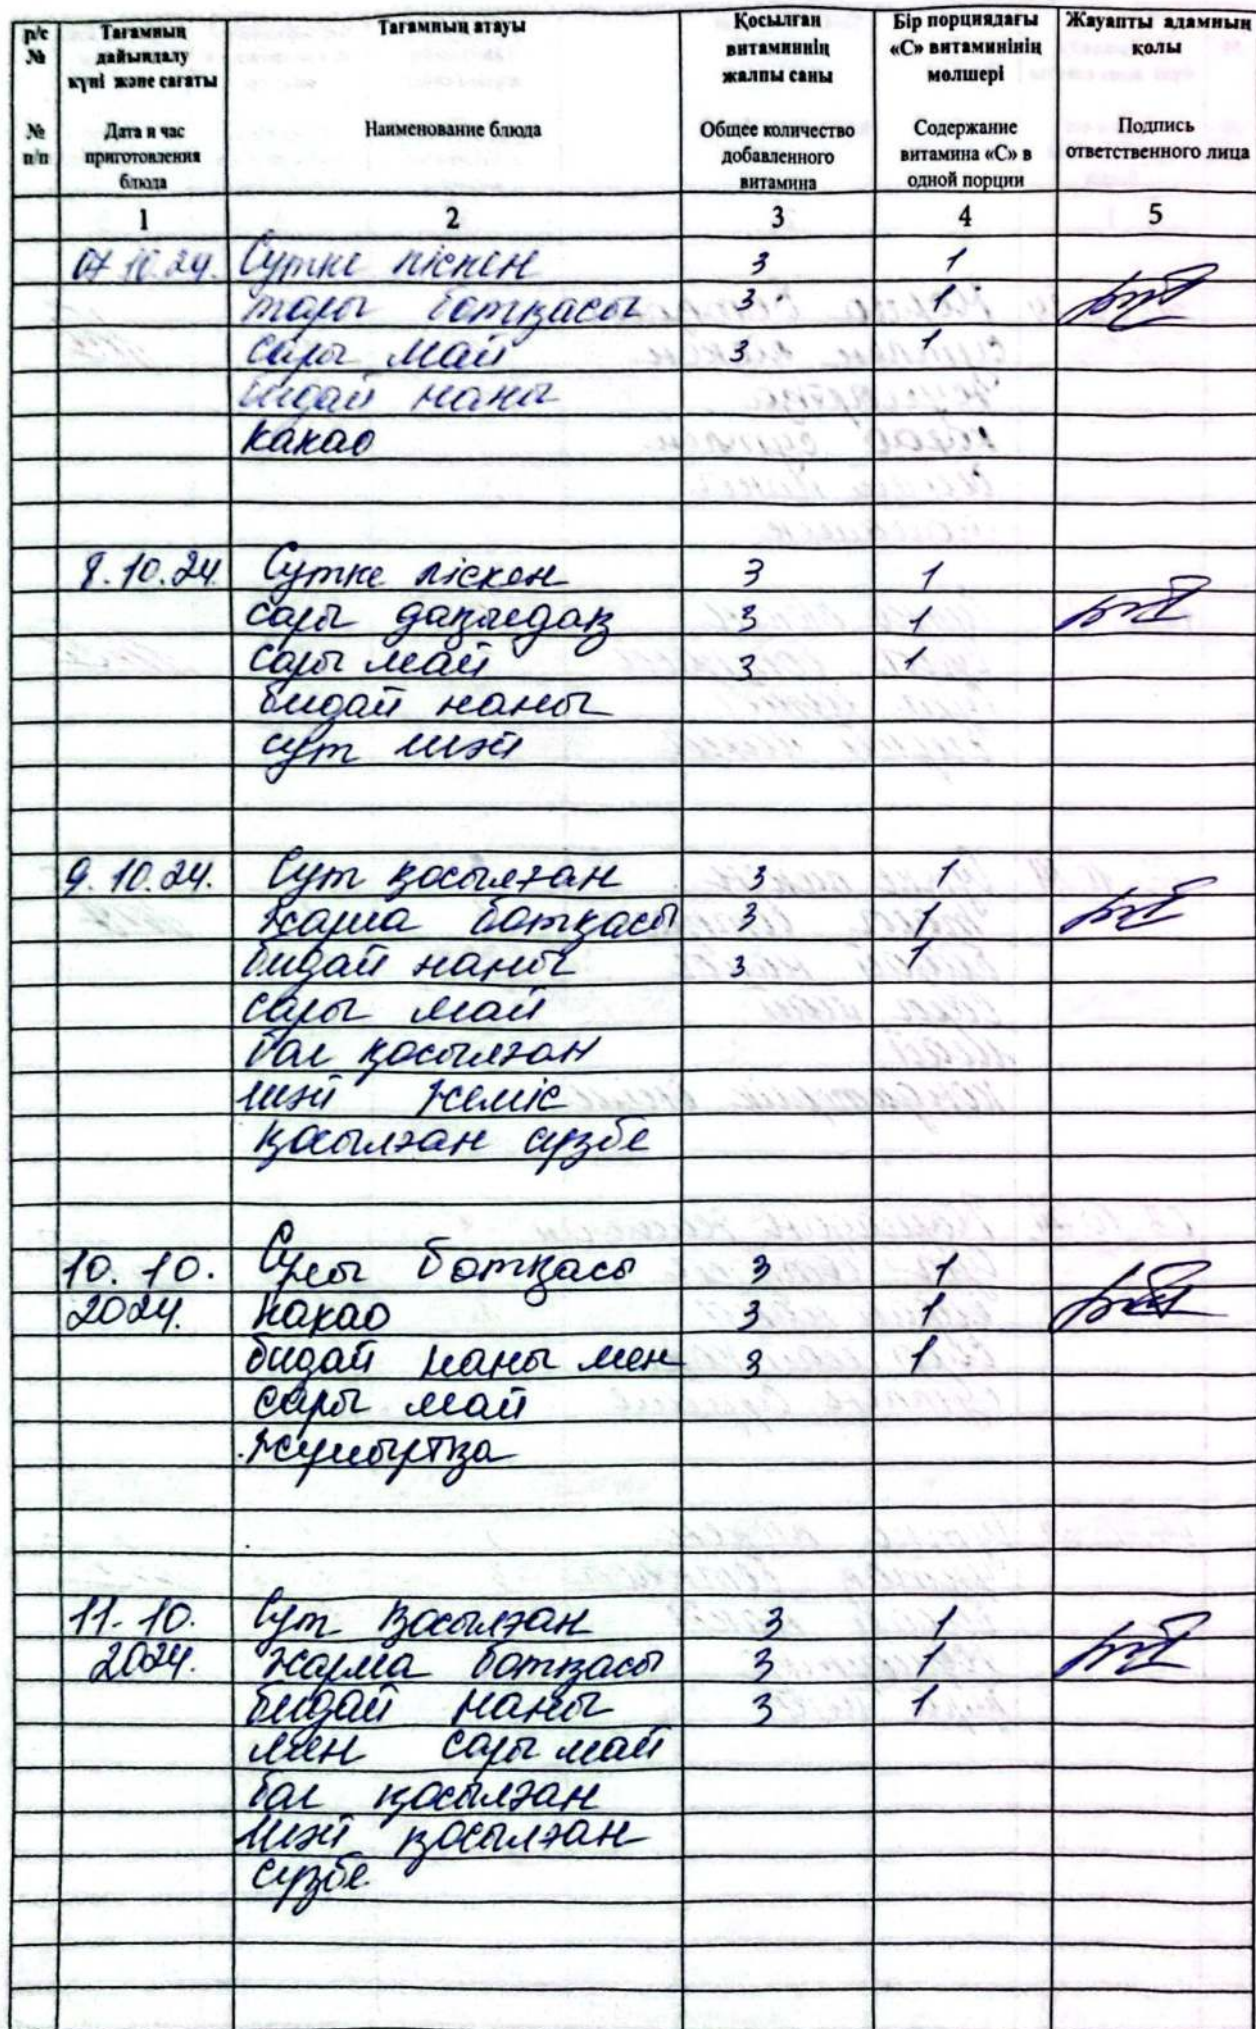 р/с № Тағамның дайындалу күні және сағаты Тағамның атауы Қосылған витаминнің жалпы саны Бір порциядағы «С» витаминінің мөлшері Жауапты адамның қолы
№ п/п Дата и час приготовления блюда Наименование блюда Общее количество добавленного витамина Содержание витамина «С» в одной порции Подпись ответственного лица
1 2 3 4 5
07.10.24. Сүтке піскен 3 1
тары ботқасы 3 1
сары май 3 1
бидай наны
какао
8.10.24 Сүтке піскен 3 1
сары 3 1
сары май 3 1
бидай наны
сүт шәй
9.10.24. Сүт қосылған 3 1
жарма ботқасы 3 1
бидай наны 3 1
сары май
бал қосылған
шәй жеміс
қосылған сүзбе
10.10. Сұлы ботқасы 3 1
2024. какао 3 1
бидай наны мен 3 1
сары май
жұмыртқа
11.10. Сүт қосылған 3 1
2024. жарма ботқасы 3 1
бидай наны 3 1
мен сары май
бал қосылған
шәй қосылған
сүзбе